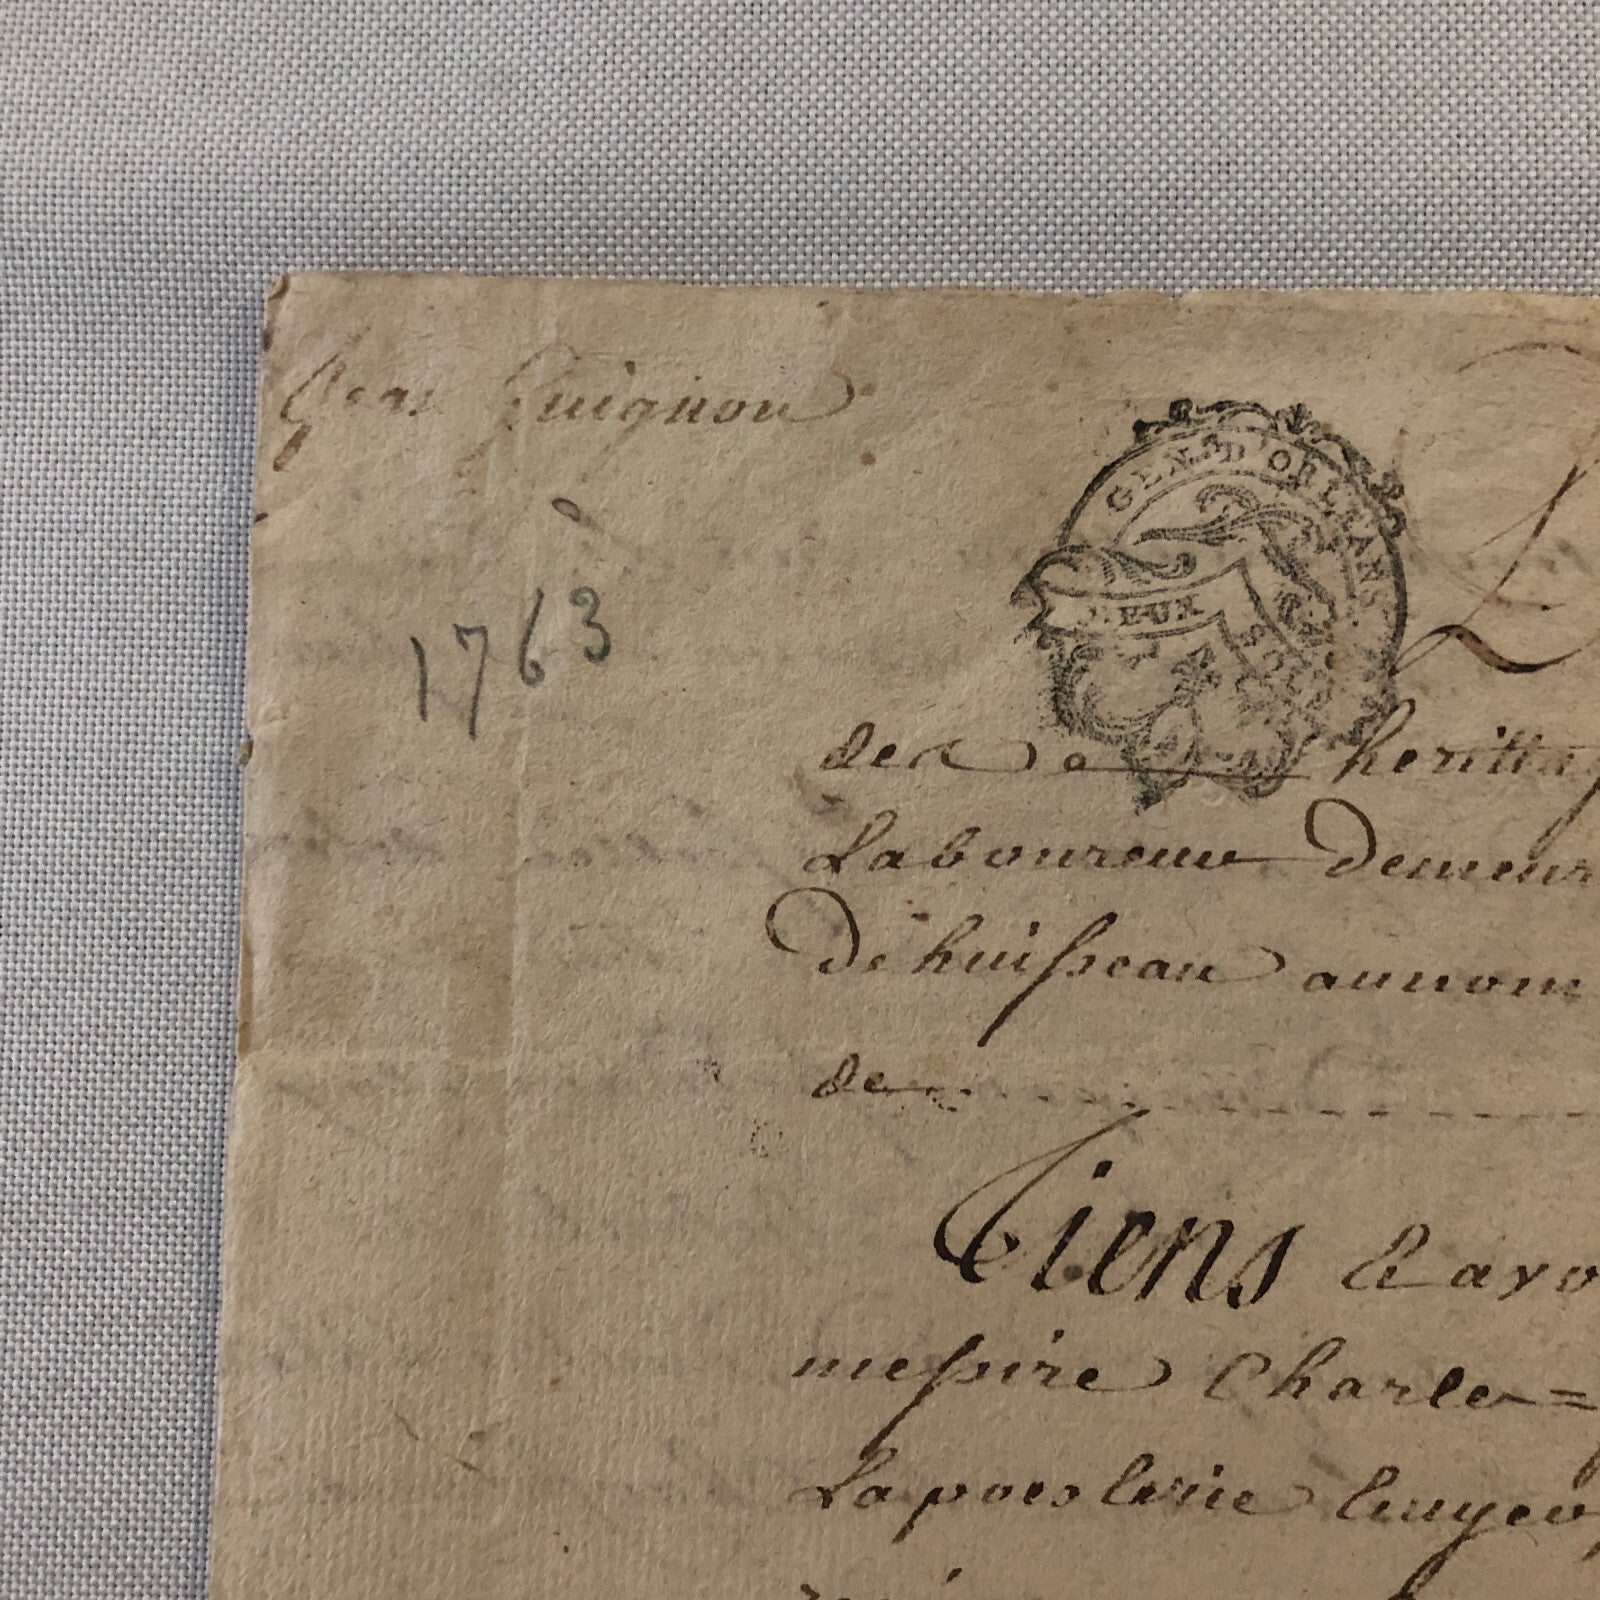 Jean Guignon
1763
GEN. D'ORLEANS
DEUX SOLS
D
des heritta
Laboureur Demeur
De huisseau aunom
de
Tiens & avo
messire Charles =
Lapoeslerie